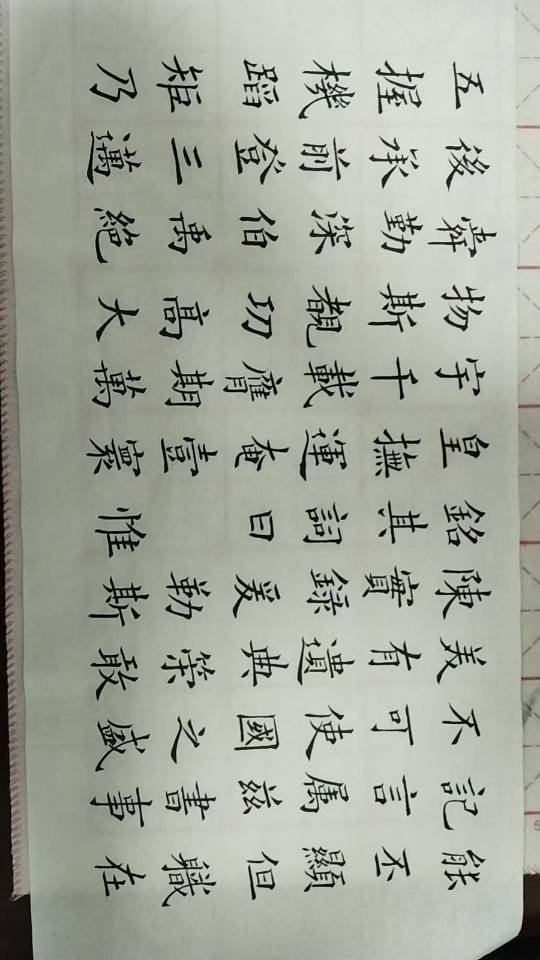 能不顯但職在
記言属兹書事
不可使國之盛
美有遺典策敢
陳實録爰勒斯
銘其詞曰 惟
皇撫運奄壹寰
宇千載膺期萬
物斯覩功高大
舜勤深伯禹絶
後承前登三邁
五握機蹈矩乃